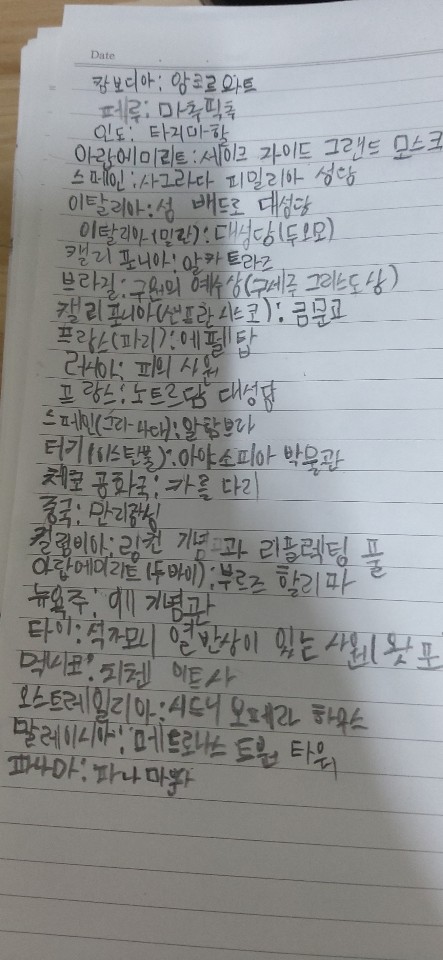 Date
캄보디아: 앙코르와트
페루: 마추픽추
인도: 타지마할
아랍에미리트: 셰이크 자이드 그랜드 모스크
스페인: 사그라다 파밀리아 성당
이탈리아: 성 베드로 대성당
이탈리아(밀란): 대성당(두오모)
캘리포니아: 알카트라즈
브라질: 구원의 예수상(구세주 그리스도상)
캘리포니아(샌프란시스코): 금문교
프랑스(파리): 에펠탑
러시아: 피의 사원
프랑스: 노트르담 대성당
스페인(그라나다): 알함브라
터키(이스탄불): 아야소피아 박물관
체코 공화국: 카를 다리
중국: 만리장성
컬럼비아: 링컨 기념관과 리플렉팅 풀
아랍에미리트(두바이): 부르즈 할리파
뉴욕주: 911 기념관
타이: 석가모니 열반상이 있는 사원(왓 포
멕시코: 치첸 이트사
오스트레일리아: 시드니 오페라 하우스
말레이시아: 페트로나스 트윈 타워
파나마: 파나마